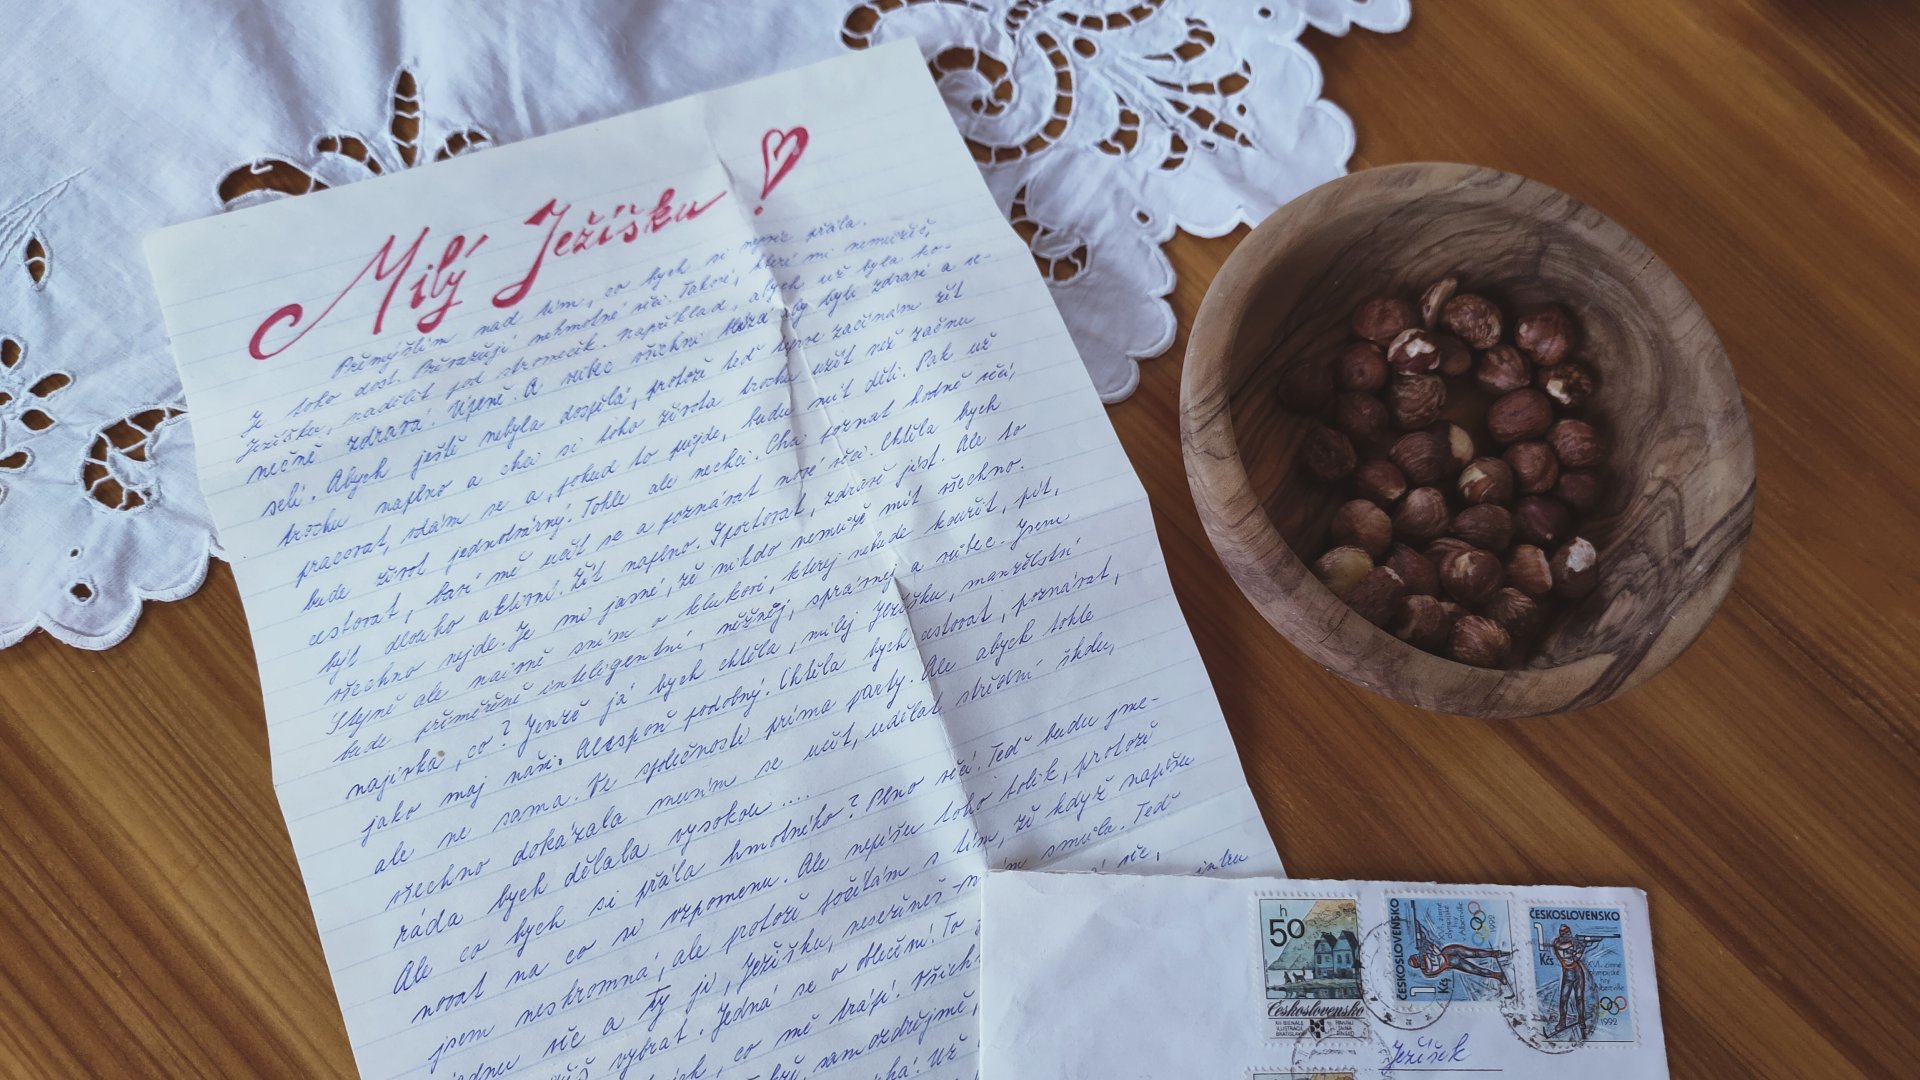 Milý Ježíšku!
Přemýšlím nad tím, co bych si nejvíc přála.
Je toho dost. Převažují nehmotné věci. Takové, které mi nemůžeš,
Ježíšku, nadělit pod stromeček. Například, abych už byla ko-
nečně zdravá! Úplně. A vůbec všichni kéž aby byli zdraví a ve-
selí. Abych ještě nebyla dospělá, protože teď teprve začínám žít
trochu naplno a chci si toho života trochu užít než začnu
pracovat, vdám se a, pokud to půjde, budu mít děti. Pak už
bude život jednotvárný. Tohle ale nechci. Chci poznat hodně věcí,
cestovat, baví mě učit se a poznávat nové věci. Chtěla bych
být dlouho aktivní. Žít naplno. Sportovat, zdravě jíst. Ale to
všechno nejde. Je mi jasné, že nikdo nemůže mít všechno.
Stejně ale naivně sním o klukovi, kterej nebude kouřit, pít,
bude přiměřeně inteligentní, něžnej, správnej a vůbec. Jsem
najivka, co? Jenže já bych chtěla, milej Ježíšku, manželství
jako maj naši. Alespoň podobný. Chtěla bych cestovat, poznávat,
ale ne sama. Ve společnosti príma party. Ale abych tohle
všechno dokázala musím se učit, udělat střední školu,
ráda bych dělala vysokou ....
Ale co bych si přála hmotného? Plno věcí. Teď budu jme-
novat na co si vzpomenu. Ale nepíšu toho tolik, protože
jsem neskromná, ale protože počítám s tím, že když napíšu
jednu věc a Ty ji, Ježíšku, neseženeš – smůla. Teď
vybrat. Jedná se o oblečení! To
co mě trápí! Všich
samozdřejmě,
Už
h
50
Československo
XII BIENÁLE
ILUSTRÁCIÍ
BRATISLAVA
ČESKOSLOVENSKO
1 Kčs
XVI. zimné
olympijské
hry
Albertville
1992
ČESKOSLOVENSKO
1
Kčs
XVI. zimné
olympijské
hry
Albertville
1992
Ježíšek